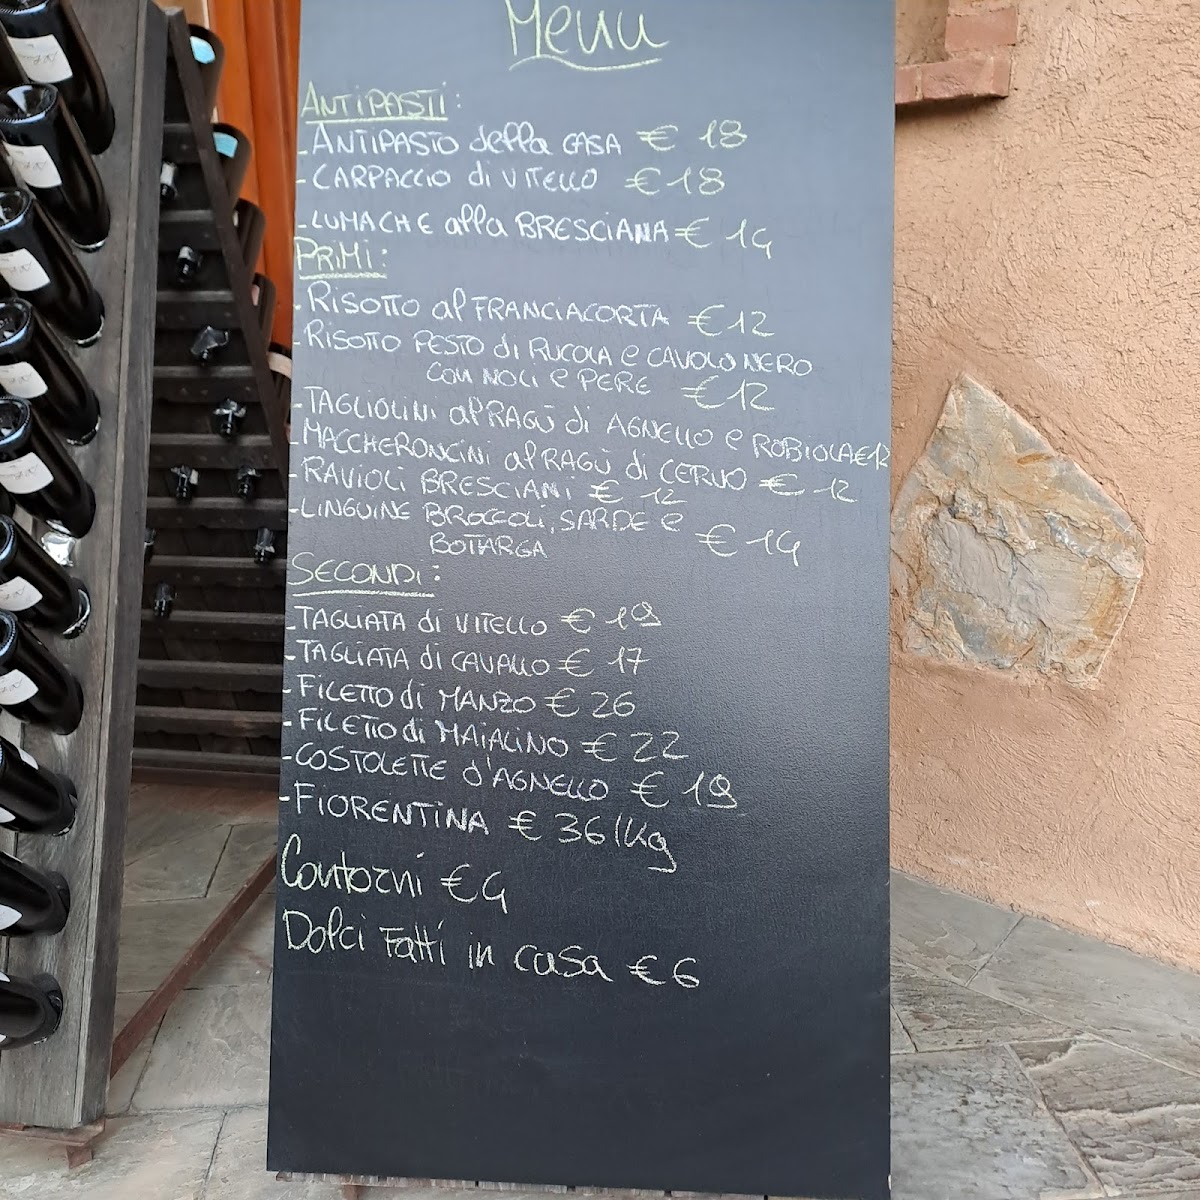 Menu
ANTIPASTI:
- ANTIPASTO della CASA € 18
- CARPACCIO di VITELLO € 18
- LUMACHE alla BRESCIANA € 14
PRIMI:
- RISOTTO al FRANCIACORTA € 12
- RISOTTO PESTO di RUCOLA e CAVOLO NERO
CON NOCI e PERE € 12
- TAGLIOLINI al RAGÙ di AGNELLO e ROBIOLA € 12
- MACCHERONCINI al RAGÙ di CERVO € 12
- RAVIOLI BRESCIANI € 12
- LINGUINE BROCCOLI, SARDE e
BOTTARGA € 14
SECONDI:
- TAGLIATA di VITELLO € 19
- TAGLIATA di CAVALLO € 17
- FILETTO di MANZO € 26
- FILETTO di MAIALINO € 22
- COSTOLETTE d'AGNELLO € 19
- FIORENTINA € 36/kg
Contorni € 4
Dolci Fatti in casa € 6